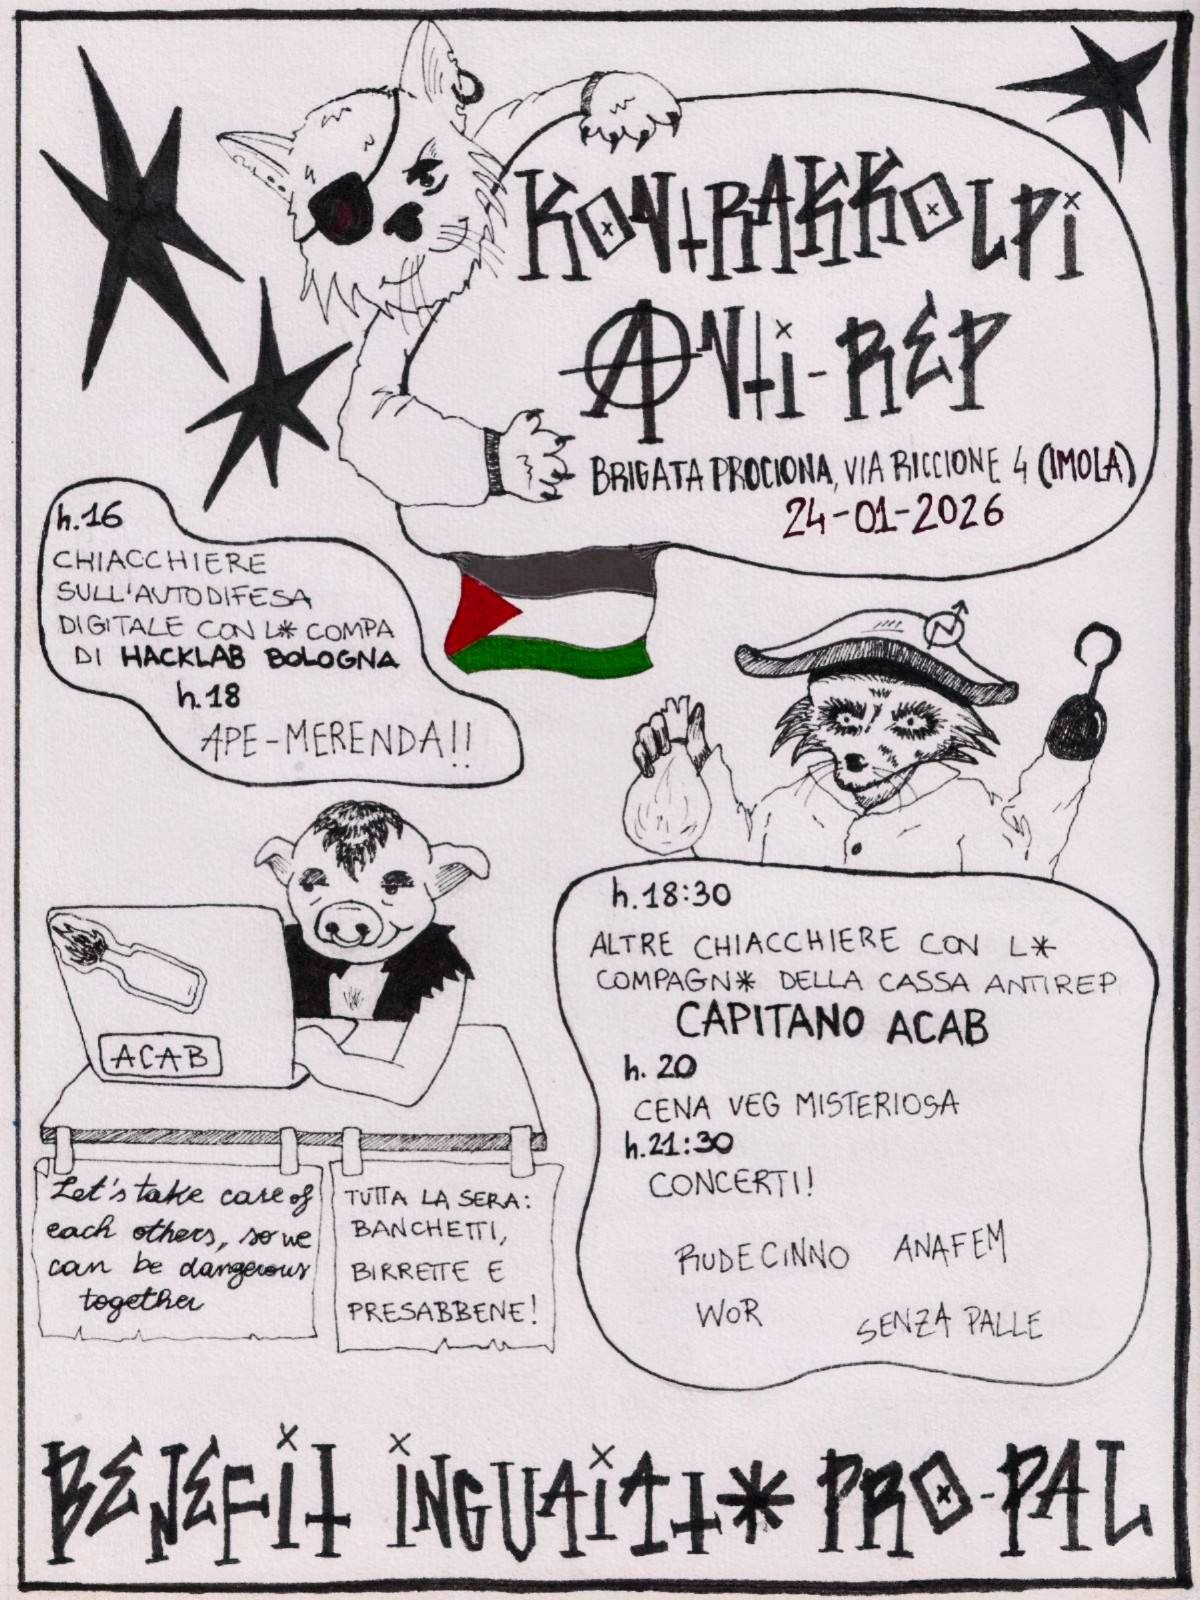 KONTRAKKOLPI
ANTI-REP
BRIGATA PROCIONA, VIA RICCIONE 4 (IMOLA)
24-01-2026
h.16
CHIACCHIERE
SULL'AUTODIFESA
DIGITALE CON L* COMPA
DI HACKLAB BOLOGNA
h.18
APE-MERENDA!!
h.18:30
ALTRE CHIACCHIERE CON L*
COMPAGN* DELLA CASSA ANTIREP
CAPITANO ACAB
h. 20
CENA VEG MISTERIOSA
h.21:30
CONCERTI!
RUDECINNO ANAFEM
WOR SENZA PALLE
ACAB
Let's take care of
each others, so we
can be dangerous
together
TUTTA LA SERA:
BANCHETTI,
BIRRETTE E
PRESABBENE!
BENEFIT INGUAIATT* PRO-PAL